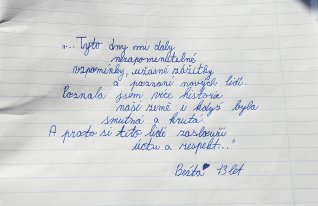 "... Tyto dny mi daly
nezapomenutelné
vzpomínky, úžasné zážitky
a poznání nových lidí.
Poznala jsem více historii
naší země i když byla
smutná a krutá.
A proto si tito lidé zaslouží
úctu a respekt..."
Beáta 13 let